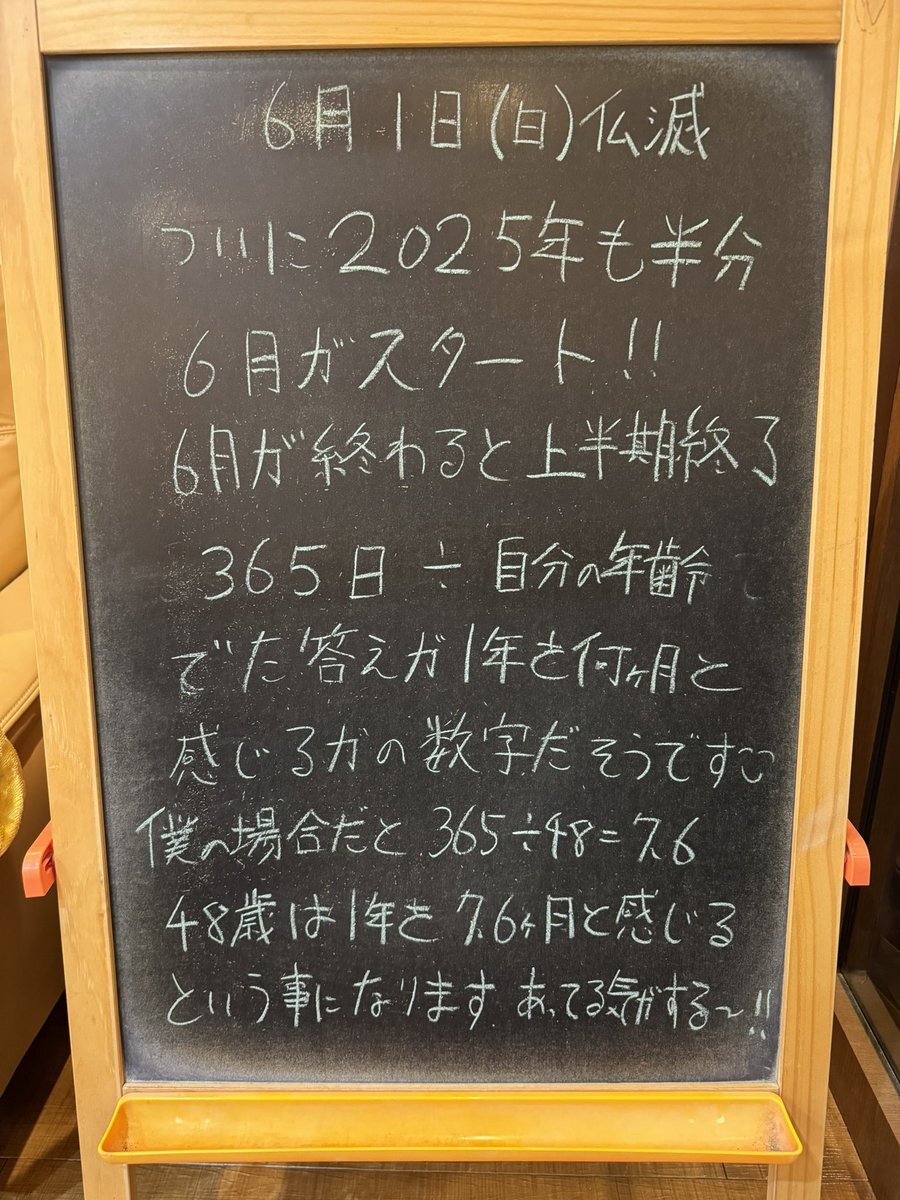 6月1日(日)仏滅
ついに2025年も半分
6月がスタート!!
6月が終わると上半期終了
365日÷自分の年齢
でた答えが1年を何ヶ月と
感じるかの数字だそうです
僕の場合だと 365÷48=7.6
48歳は1年を7.6ヶ月と感じる
という事になります あってる気がする〜!!